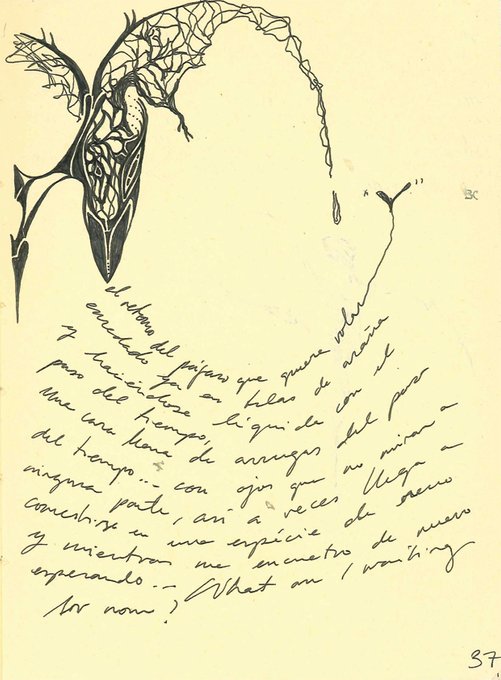 el retorno del pájaro que quiere volar
enredado ya en telas de araña
y haciéndose líquida con el
paso del tiempo,
Una cara llena de arrugas del paso
del tiempo... con ojos que no miran a
ninguna parte, así a veces llega a
en una espécie de
y mientras me encuetro de nuevo
esperando... What am I waiting
for now?
37